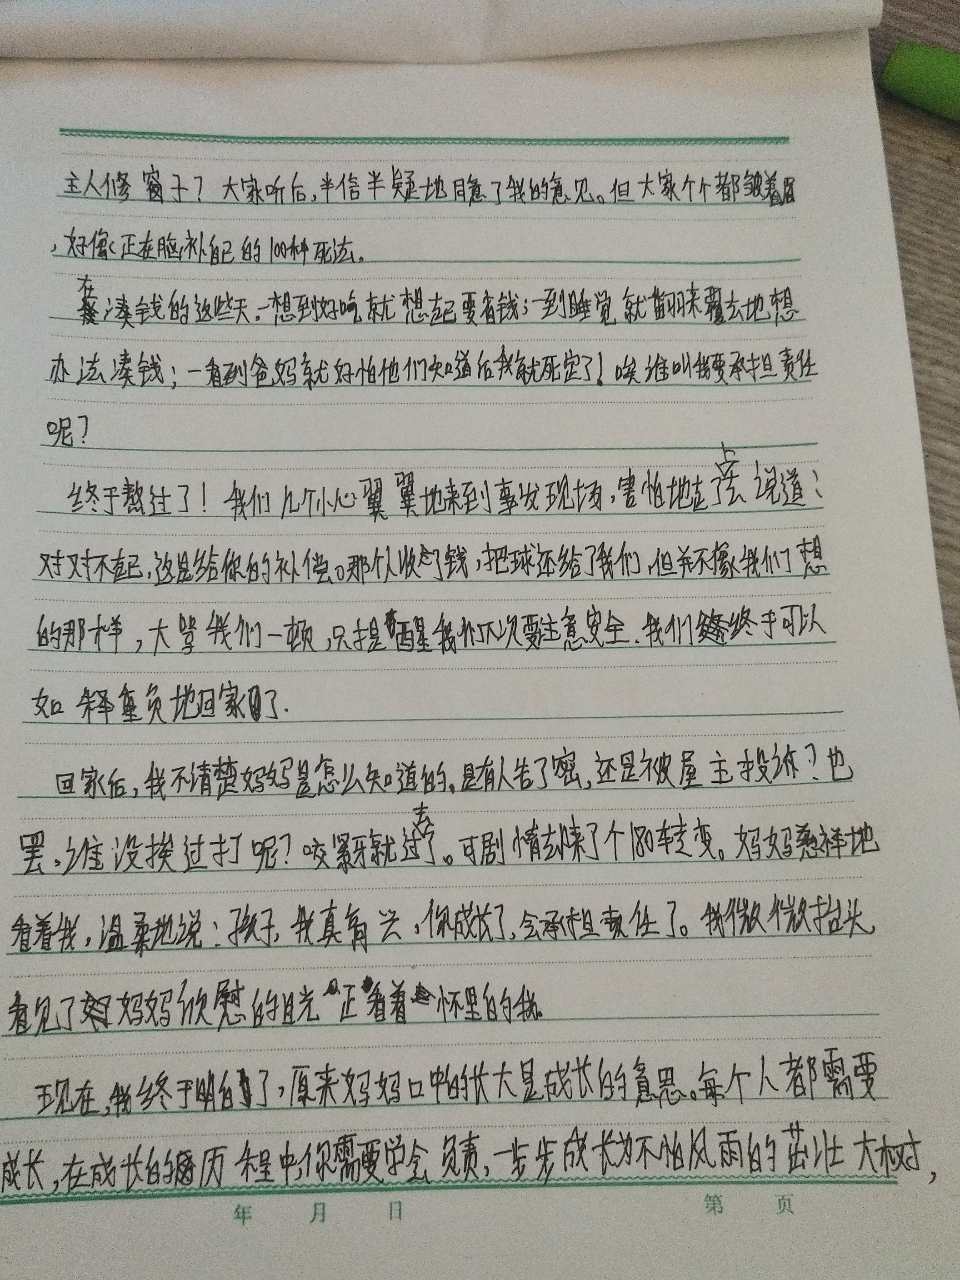 主人修窗子？大家听后，半信半疑地同意了我的意见。但大家个个都皱着眉
，好像正在脑补自己的100种死法。
在凑钱的这些天。一想到好吃就想起要有钱；一到睡觉就翻来覆去地想
办法凑钱；一看到爸妈就好怕他们知道后我就死定了！唉谁叫我要承担责任
呢？
终于熬过了！我们几个小心翼翼地来到事发现场，害怕地走了上去说道：
对对不起，这是给你的补偿。那个人收了钱，把球还给了我们，但并不像我们想
的那样，大骂我们一顿，只是提醒我们下次要注意安全．我们终于可以
如释重负地回家了．
回家后，我不清楚妈妈是怎么知道的，是有人告了密，还是被屋主投诉？也
罢，谁没挨过打呢？咬紧牙就过去了。可剧情却来了个180转变。妈妈慈祥地
看着我，温柔地说：孩子，我真高兴，你成长了，会承担责任了。我微微抬头，
看见了妈妈欣慰的目光正看着怀里的我。
现在，我终于明白了，原来妈妈口中的长大是成长的意思。每个人都需要
成长，在成长的历程中，你需要学会负责，一步步成长为不怕风雨的茁壮大树，
年 月 日 第 页